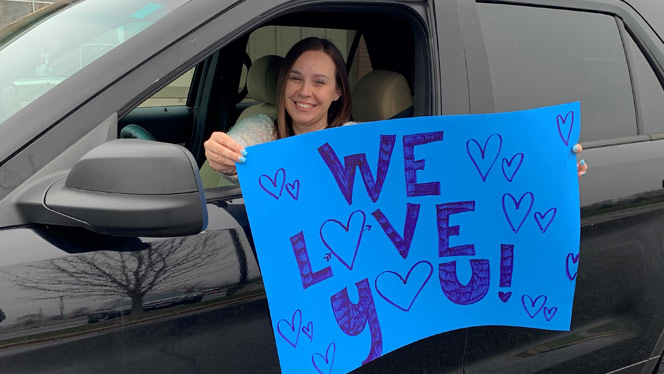 WE
L♡VE
Y♡U!